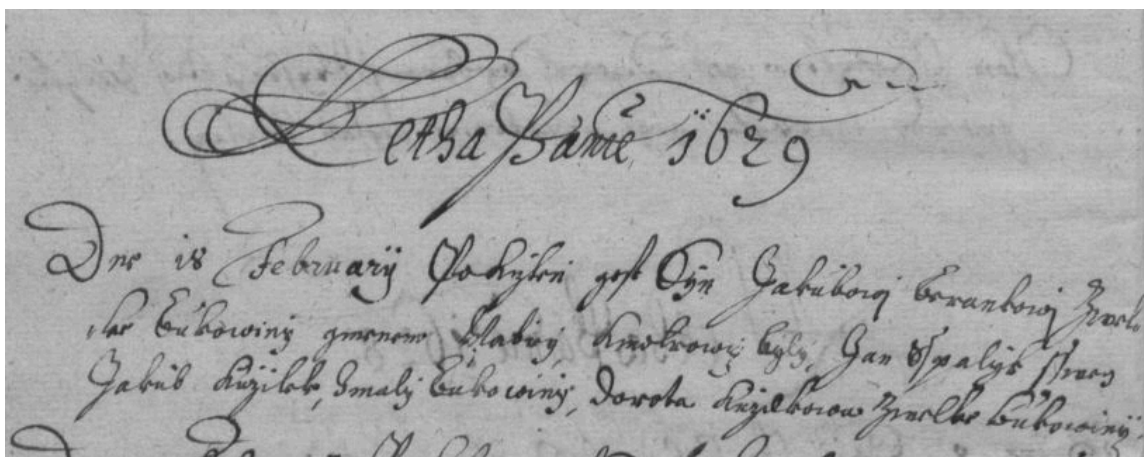 Letha Panie 1629
Dne 18 February Pokrztien gest Syn Jakubowi Berankowi Zwel
ike Bukowiny gmenem Kmotrowy byly, Jan Sspalyk
Jakub Kuzilek, Zmaly Bukowiny, Dorota Kuzelkowa Zwelke Bukowiny